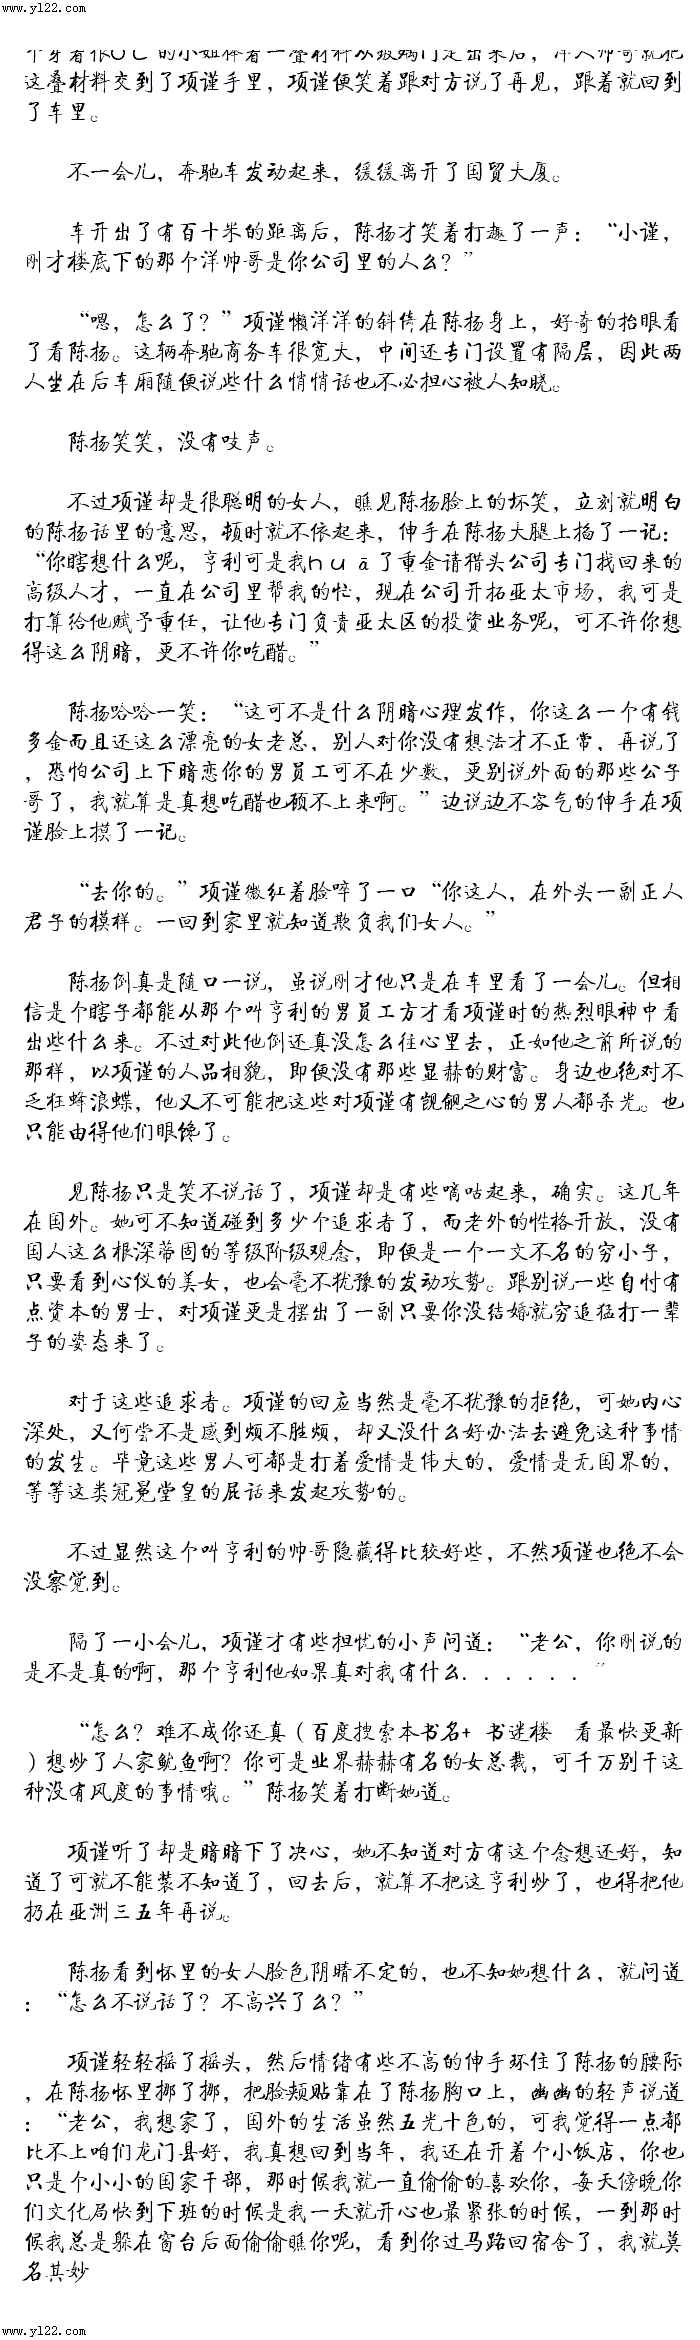 www.yl22.com
个穿着很OL的小姐捧着一叠材料从玻璃门走出来后，洋人帅哥就把
这叠材料交到了项谨手里，项谨便笑着跟对方说了再见，跟着就回到
了车里。
不一会儿，奔驰车发动起来，缓缓离开了国贸大厦。
车开出了有百十米的距离后，陈扬才笑着打趣了一声：“小谨，
刚才楼底下的那个洋帅哥是你公司里的人么？”
“嗯，怎么了？”项谨懒洋洋的斜倚在陈扬身上，好奇的抬眼看
了看陈扬。这辆奔驰商务车很宽大，中间还专门设置有隔层，因此两
人坐在后车厢随便说些什么悄悄话也不必担心被人知晓。
陈扬笑笑，没有吱声。
不过项谨却是很聪明的女人，瞧见陈扬脸上的坏笑，立刻就明白
的陈扬话里的意思，顿时就不依起来，伸手在陈扬大腿上掐了一记：
“你瞎想什么呢，亨利可是我huā了重金请猎头公司专门找回来的
高级人才，一直在公司里帮我的忙，现在公司开拓亚太市场，我可是
打算给他赋予重任，让他专门负责亚太区的投资业务呢，可不许你想
得这么阴暗，更不许你吃醋。”
陈扬哈哈一笑：“这可不是什么阴暗心理发作，你这么一个有钱
多金而且还这么漂亮的女老总，别人对你没有想法才不正常，再说了
，恐怕公司上下暗恋你的男员工可不在少数，更别说外面的那些公子
哥了，我就算是真想吃醋也顾不上来啊。”边说边不客气的伸手在项
谨脸上摸了一记。
“去你的。”项谨微红着脸啐了一口“你这人，在外头一副正人
君子的模样。一回到家里就知道欺负我们女人。”
陈扬倒真是随口一说，虽说刚才他只是在车里看了一会儿。但相
信是个瞎子都能从那个叫亨利的男员工方才看项谨时的热烈眼神中看
出些什么来。不过对此他倒还真没怎么往心里去，正如他之前所说的
那样，以项谨的人品相貌，即便没有那些显赫的财富。身边也绝对不
乏狂蜂浪蝶，他又不可能把这些对项谨有觊觎之心的男人都杀光。也
只能由得他们眼馋了。
见陈扬只是笑不说话了，项谨却是有些嘀咕起来，确实。这几年
在国外。她可不知道碰到多少个追求者了，而老外的性格开放，没有
国人这么根深蒂固的等级阶级观念，即便是一个一文不名的穷小子，
只要看到心仪的美女，也会毫不犹豫的发动攻势。跟别说一些自忖有
点资本的男士，对项谨更是摆出了一副只要你没结婚就穷追猛打一辈
子的姿态来了。
对于这些追求者。项谨的回应当然是毫不犹豫的拒绝，可她内心
深处，又何尝不是感到烦不胜烦，却又没什么好办法去避免这种事情
的发生。毕竟这些男人可都是打着爱情是伟大的，爱情是无国界的，
等等这类冠冕堂皇的屁话来发起攻势的。
不过显然这个叫亨利的帅哥隐藏得比较好些，不然项谨也绝不会
没察觉到。
隔了一小会儿，项谨才有些担忧的小声问道：“老公，你刚说的
是不是真的啊，那个亨利他如果真对我有什么．．．．．．”
“怎么？难不成你还真（百度搜索本书名+ 书迷楼 看最快更新
）想炒了人家鱿鱼啊？你可是业界赫赫有名的女总裁，可千万别干这
种没有风度的事情哦。”陈扬笑着打断她道。
项谨听了却是暗暗下了决心，她不知道对方有这个念想还好，知
道了可就不能装不知道了，回去后，就算不把这亨利炒了，也得把他
扔在亚洲三五年再说。
陈扬看到怀里的女人脸色阴晴不定的，也不知她想什么，就问道
：“怎么不说话了？不高兴了么？”
项谨轻轻摇了摇头，然后情绪有些不高的伸手环住了陈扬的腰际
，在陈扬怀里挪了挪，把脸颊贴靠在了陈扬胸口上，幽幽的轻声说道
：“老公，我想家了，国外的生活虽然五光十色的，可我觉得一点都
比不上咱们龙门县好，我真想回到当年，我还在开着个小饭店，你也
只是个小小的国家干部，那时候我就一直偷偷的喜欢你，每天傍晚你
们文化局快到下班的时候是我一天就开心也最紧张的时候，一到那时
候我总是躲在窗台后面偷偷瞧你呢，看到你过马路回宿舍了，我就莫
名其妙
www.yl22.com